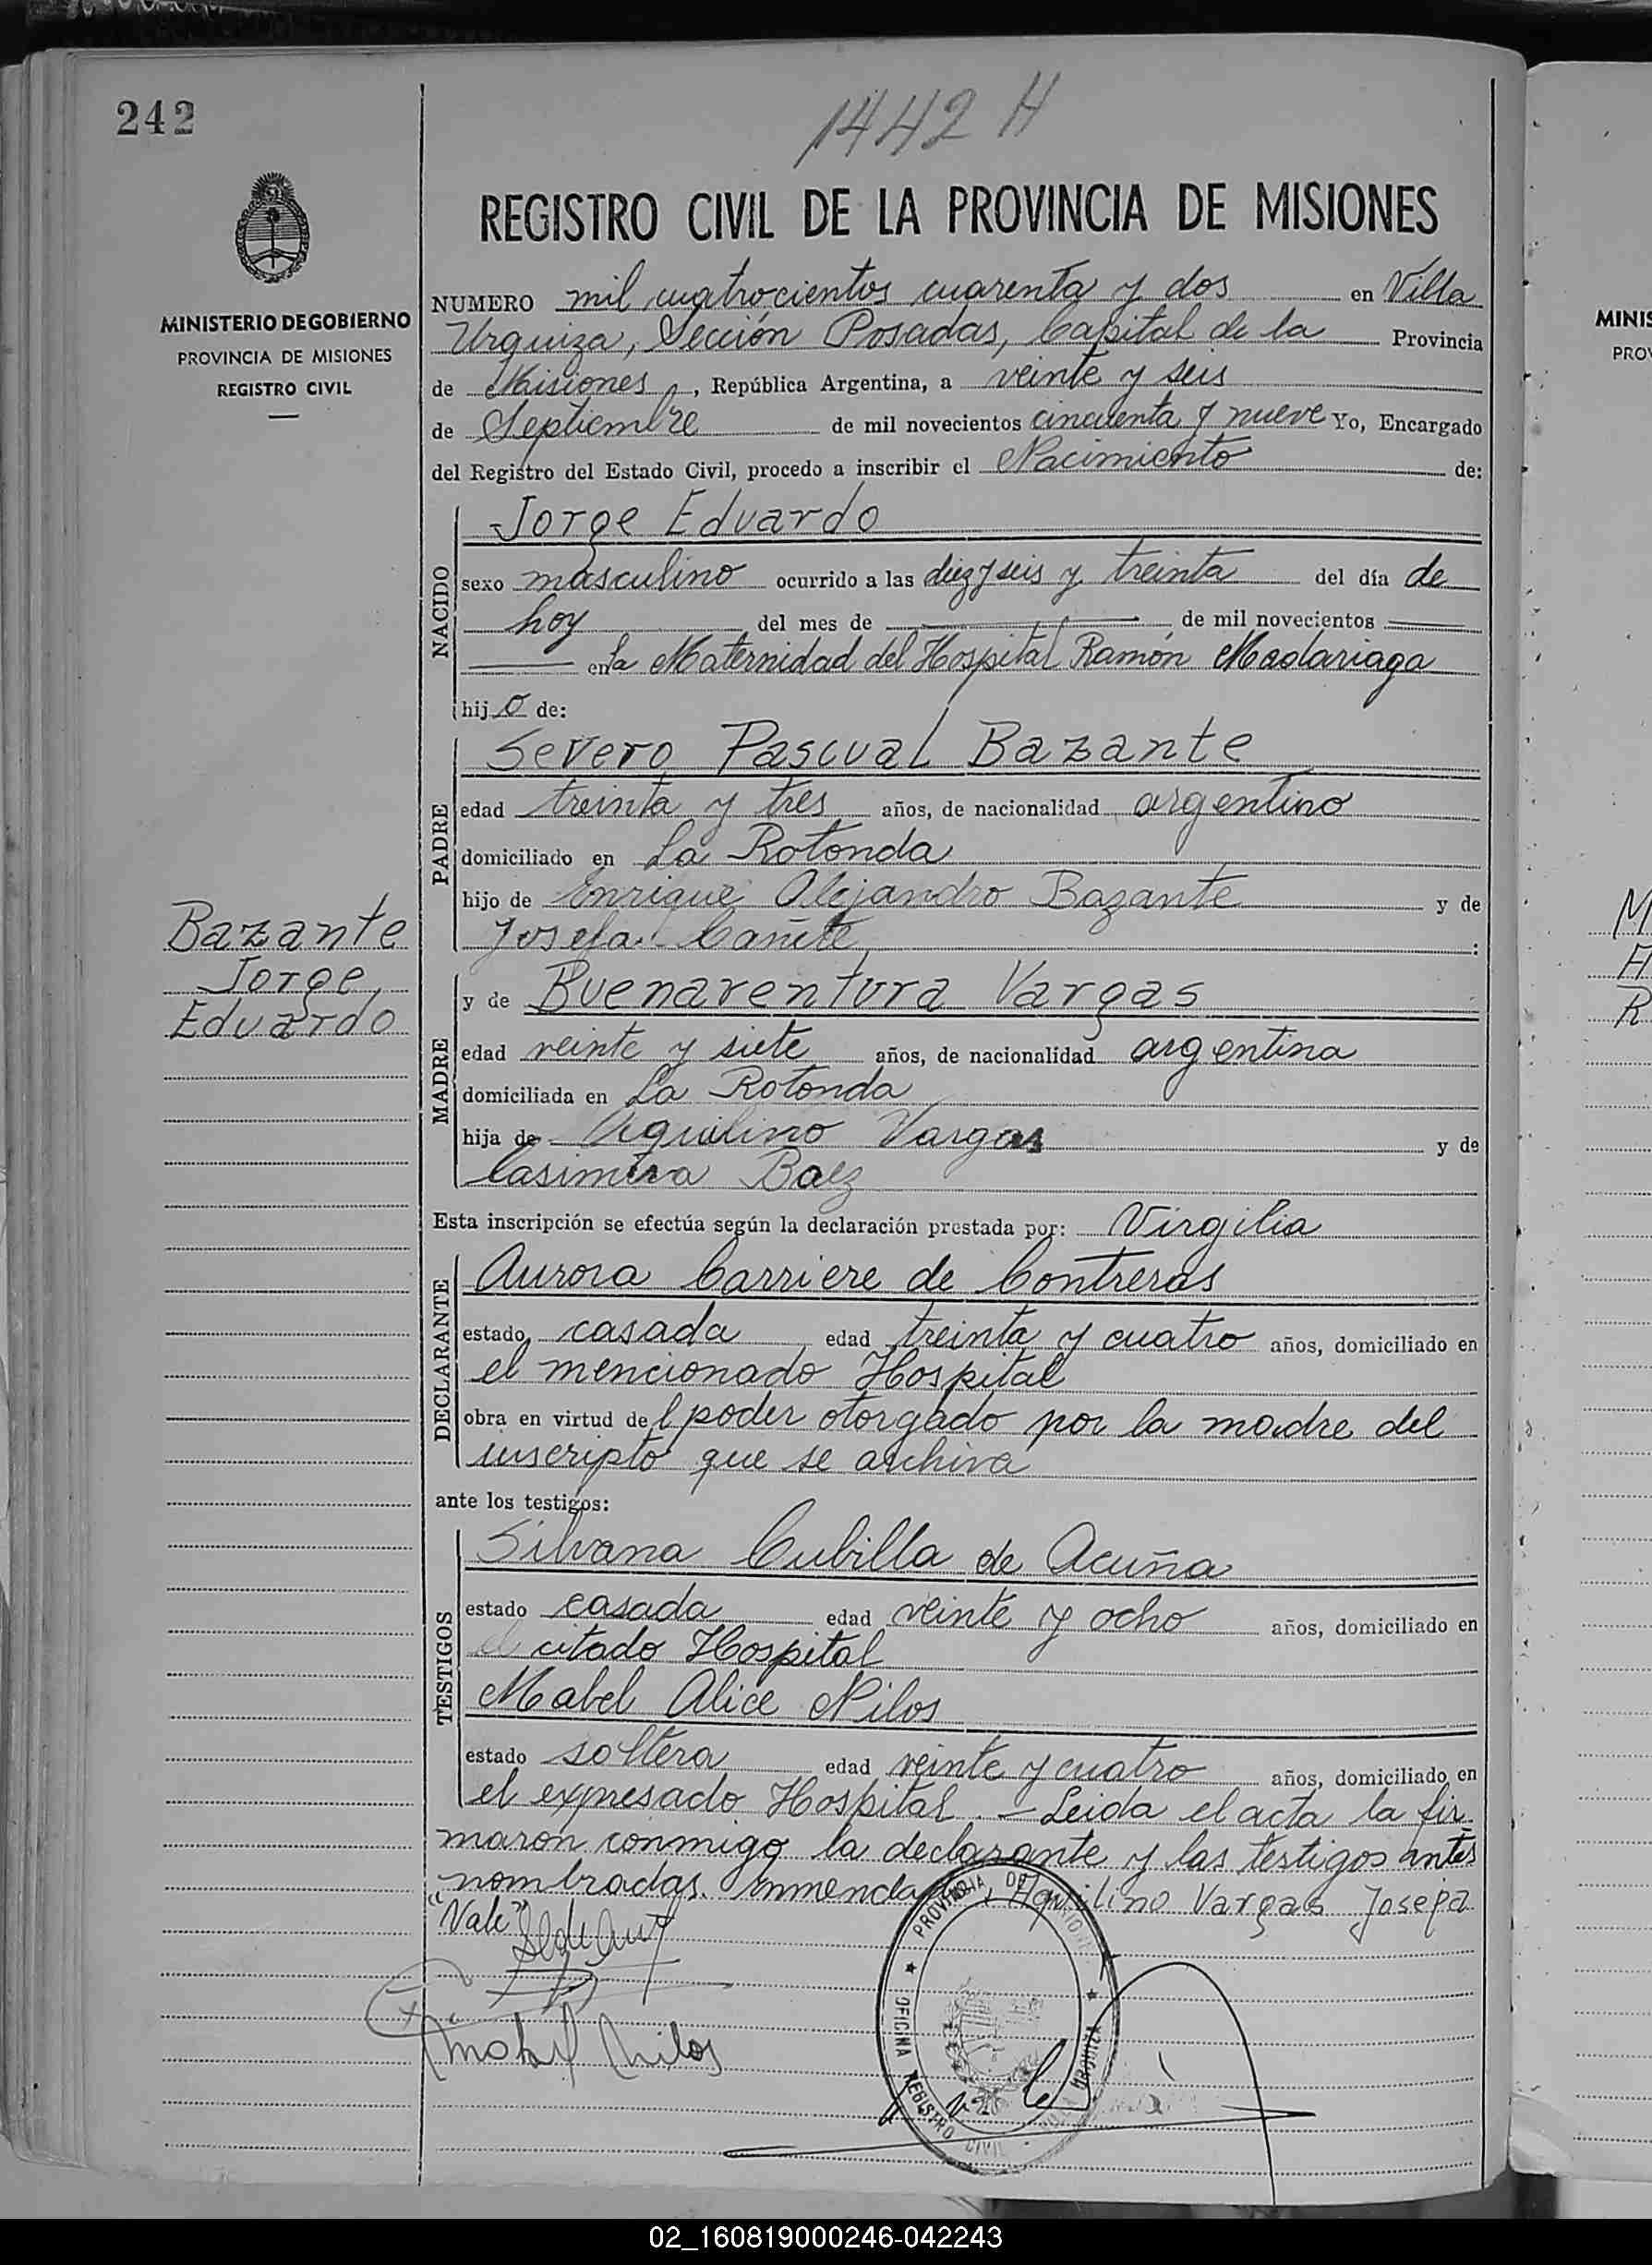 242
1442 H
MINISTERIO DE GOBIERNO
PROVINCIA DE MISIONES
REGISTRO CIVIL
REGISTRO CIVIL DE LA PROVINCIA DE MISIONES
NUMERO mil cuatrocientos cuarenta y dos en Villa
Urquiza, Sección Posadas, Capital de la Provincia
de Misiones, República Argentina, a veinte y seis
de Septiembre de mil novecientos cincuenta y nueve Yo, Encargado
del Registro del Estado Civil, procedo a inscribir el Nacimiento de:
NACIDO
Jorge Eduardo
sexo masculino ocurrido a las diez y seis y treinta del día de
hoy del mes de , de mil novecientos
en la Maternidad del Hospital Ramón Madariaga
hijo de:
PADRE
Severo Pascual Bazante
edad treinta y tres años, de nacionalidad argentino
domiciliado en La Rotonda
hijo de Enrique Alejandro Bazante y de
Josefa Cañete :
Bazante
Jorge
Eduardo
MADRE
y de Buenaventura Vargas
edad veinte y siete años, de nacionalidad argentina
domiciliada en La Rotonda
hija de Aquilino Vargas y de
Casimira Baez
Esta inscripción se efectúa según la declaración prestada por: Virgilia
DECLARANTE
Aurora Carriere de Contreras
estado casada edad treinta y cuatro años, domiciliado en
el mencionado Hospital
obra en virtud del poder otorgado por la madre del
inscripto que se archiva
ante los testigos:
TESTIGOS
Silvana Cubilla de Acuña
estado casada edad veinte y ocho años, domiciliado en
el citado Hospital
Mabel Alice Nilos
estado soltera edad veinte y cuatro años, domiciliado en
el expresado Hospital. - Leida el acta la fir
maron conmigo la declarante y las testigos antes
nombradas. Enmendado, Aquilino Vargas Josefa
"Vale"
Mabel Nilos
PROVINCIA DE MISIONES
OFICINA REGISTRO CIVIL
MINIS
PRO
M
H
R
02_160819000246-042243